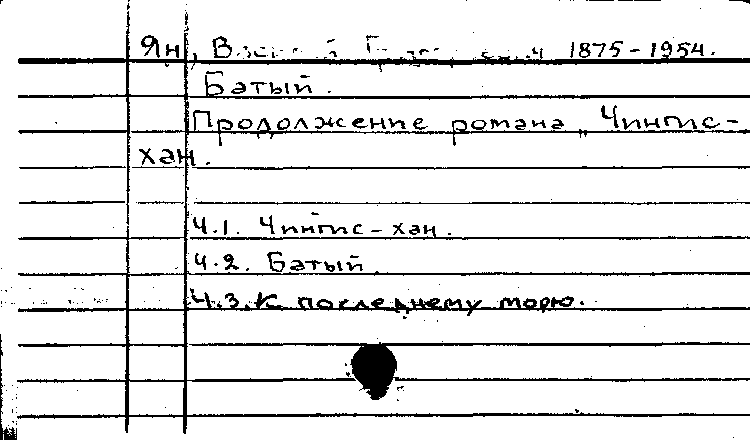 Ян, 1875-1954.
Батый.
Продолжение романа „Чингис-
хан.
Ч.1. Чингис-хан.
Ч.2. Батый.
Ч.3. К последнему морю.